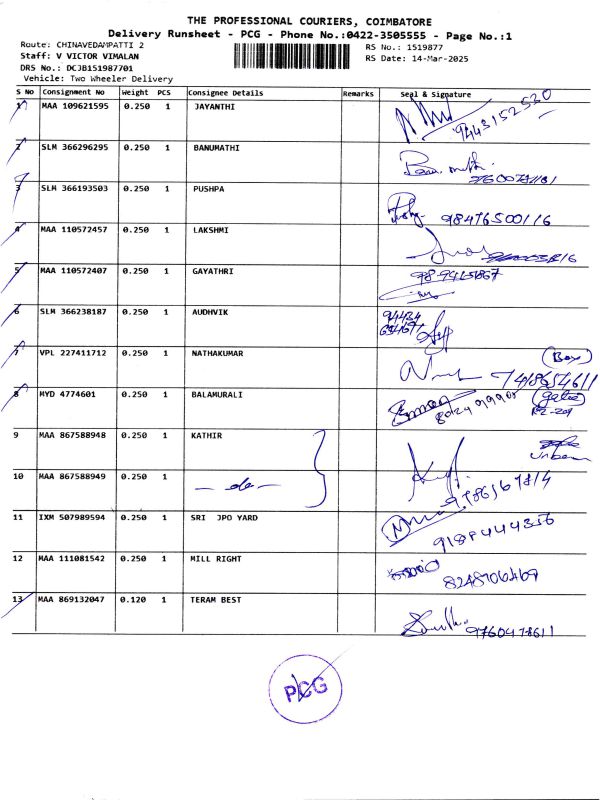 THE PROFESSIONAL COURIERS, COIMBATORE
Delivery Runsheet - PCG - Phone No.:0422-3505555 - Page No.:1
Route: CHINAVEDAMPATTI 2 RS No.: 1519877
Staff: V VICTOR VIMALAN RS Date: 14-Mar-2025
DRS No.: DCJB151987701
Vehicle: Two Wheeler Delivery
S No Consignment No Weight PCS Consignee Details Remarks Seal & Signature
1 MAA 109621595 0.250 1 JAYANTHI 9443152530
2 SLM 366296295 0.250 1 BANUMATHI
3 SLM 366193503 0.250 1 PUSHPA 98476500116
4 MAA 110572457 0.250 1 LAKSHMI
5 MAA 110572407 0.250 1 GAYATHRI
6 SLM 366238187 0.250 1 AUDHVIK
7 VPL 227411712 0.250 1 NATHAKUMAR (Box) 7418654611
8 MYD 4774601 0.250 1 BALAMURALI
9 MAA 867588948 0.250 1 KATHIR
10 MAA 867588949 0.250 1 - do -
11 IXM 507989594 0.250 1 SRI JPO YARD
12 MAA 111081542 0.250 1 MILL RIGHT
13 MAA 869132047 0.120 1 TERAM BEST
PCG